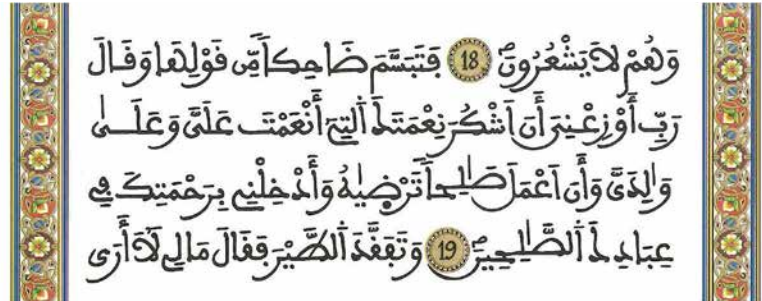 وَهُمْ لاَ يَشْعُرُونَۖ 18 فَتَبَسَّمَ ضَاحِكاٗ مِّن قَوْلِهَا وَقَالَ
رَبِّ أَوْزِعْنِےٓ أَنَ اَشْكُرَ نِعْمَتَكَ اَ۬لتِےٓ أَنْعَمْتَ عَلَيَّ وَعَلَىٰ
وَٰلِدَيَّ وَأَنَ اَعْمَلَ صَٰلِحاٗ تَرْضَيٰهُ وَأَدْخِلْنِے بِرَحْمَتِكَ فِے
عِبَادِكَ اَ۬لصَّٰلِحِينَۖ 19 وَتَفَقَّدَ اَ۬لطَّيْرَ فَقَالَ مَالِے لَآ أَرَى